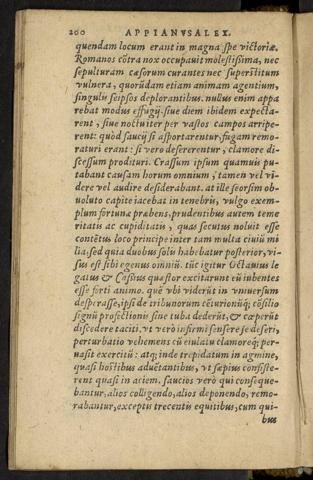 200 APPIANVS ALEX.
quendam locum erant in magna spe victoriæ.
Romanos cōtra nox occupauit molestissima, nec
sepulturam cæsorum curantes nec superstitum
vulnera, quorūdam etiam animam agentium,
singulis seipsos deplorantibus. nullus enim appa
rebat modus effugij. siue diem ibidem expecta-
rent, siue noctu iter per vastos campos arripe-
rent: quòd saucij si asportarentur, fugam remo-
raturi erant: si vero desererentur, clamore di-
scessum prodituri. Crassum ipsum quamuis pu-
tabant causam horum omnium, tamen vel vi-
dere vel audire desiderabant. at ille seorsim ob-
uoluto capite iacebat in tenebris, vulgo exem-
plum fortunæ præbens, prudentibus autem teme
ritatis ac cupiditatis, quas secutus noluit esse
contētus loco principe inter tam multa ciuiū mi
lia, sed quia duobus solis habebatur posterior, vi-
sus est sibi egenus omniū. tūc igitur Octauius le
gatus & Cassius quæstor excitarunt eū iubentes
esse forti animo. quē vbi viderūt in vniuersum
desperasse, ipsi de tribunorum cēturionūq; cōsilio
signū profectionis sine tuba dederūt, & cœperūt
discedere taciti. vt verò infirmi sensere se deseri,
perturbatio vehemens cū eiulatu clamoreq; per-
uasit exercitū: atq; inde trepidatum in agmine,
quasi hostibus aduētantibus, vt sæpius consiste-
rent quasi in aciem. saucios verò qui conseque-
bantur, alios colligendo, alios deponendo, remo-
rabantur, exceptis trecentis equitibus, cum qui-
bus